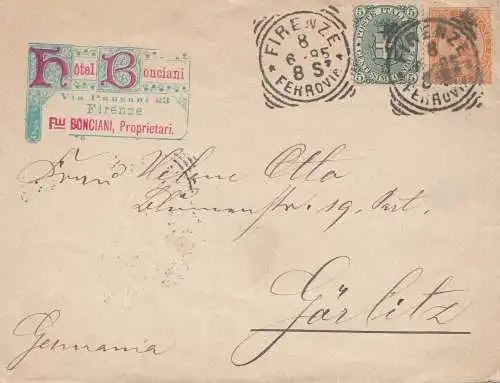 Hôtel Bonciani
Via Panzani 23
Firenze
Flli BONCIANI, Proprietari.
FIRENZE
8
6-95
8 S
FERROVIA
POSTE ITALIANE
5 5
FIRENZE
8
95
FERROVIA
Frau Helene Otto
Blumenstr. 19. Part.
Görlitz
Germania